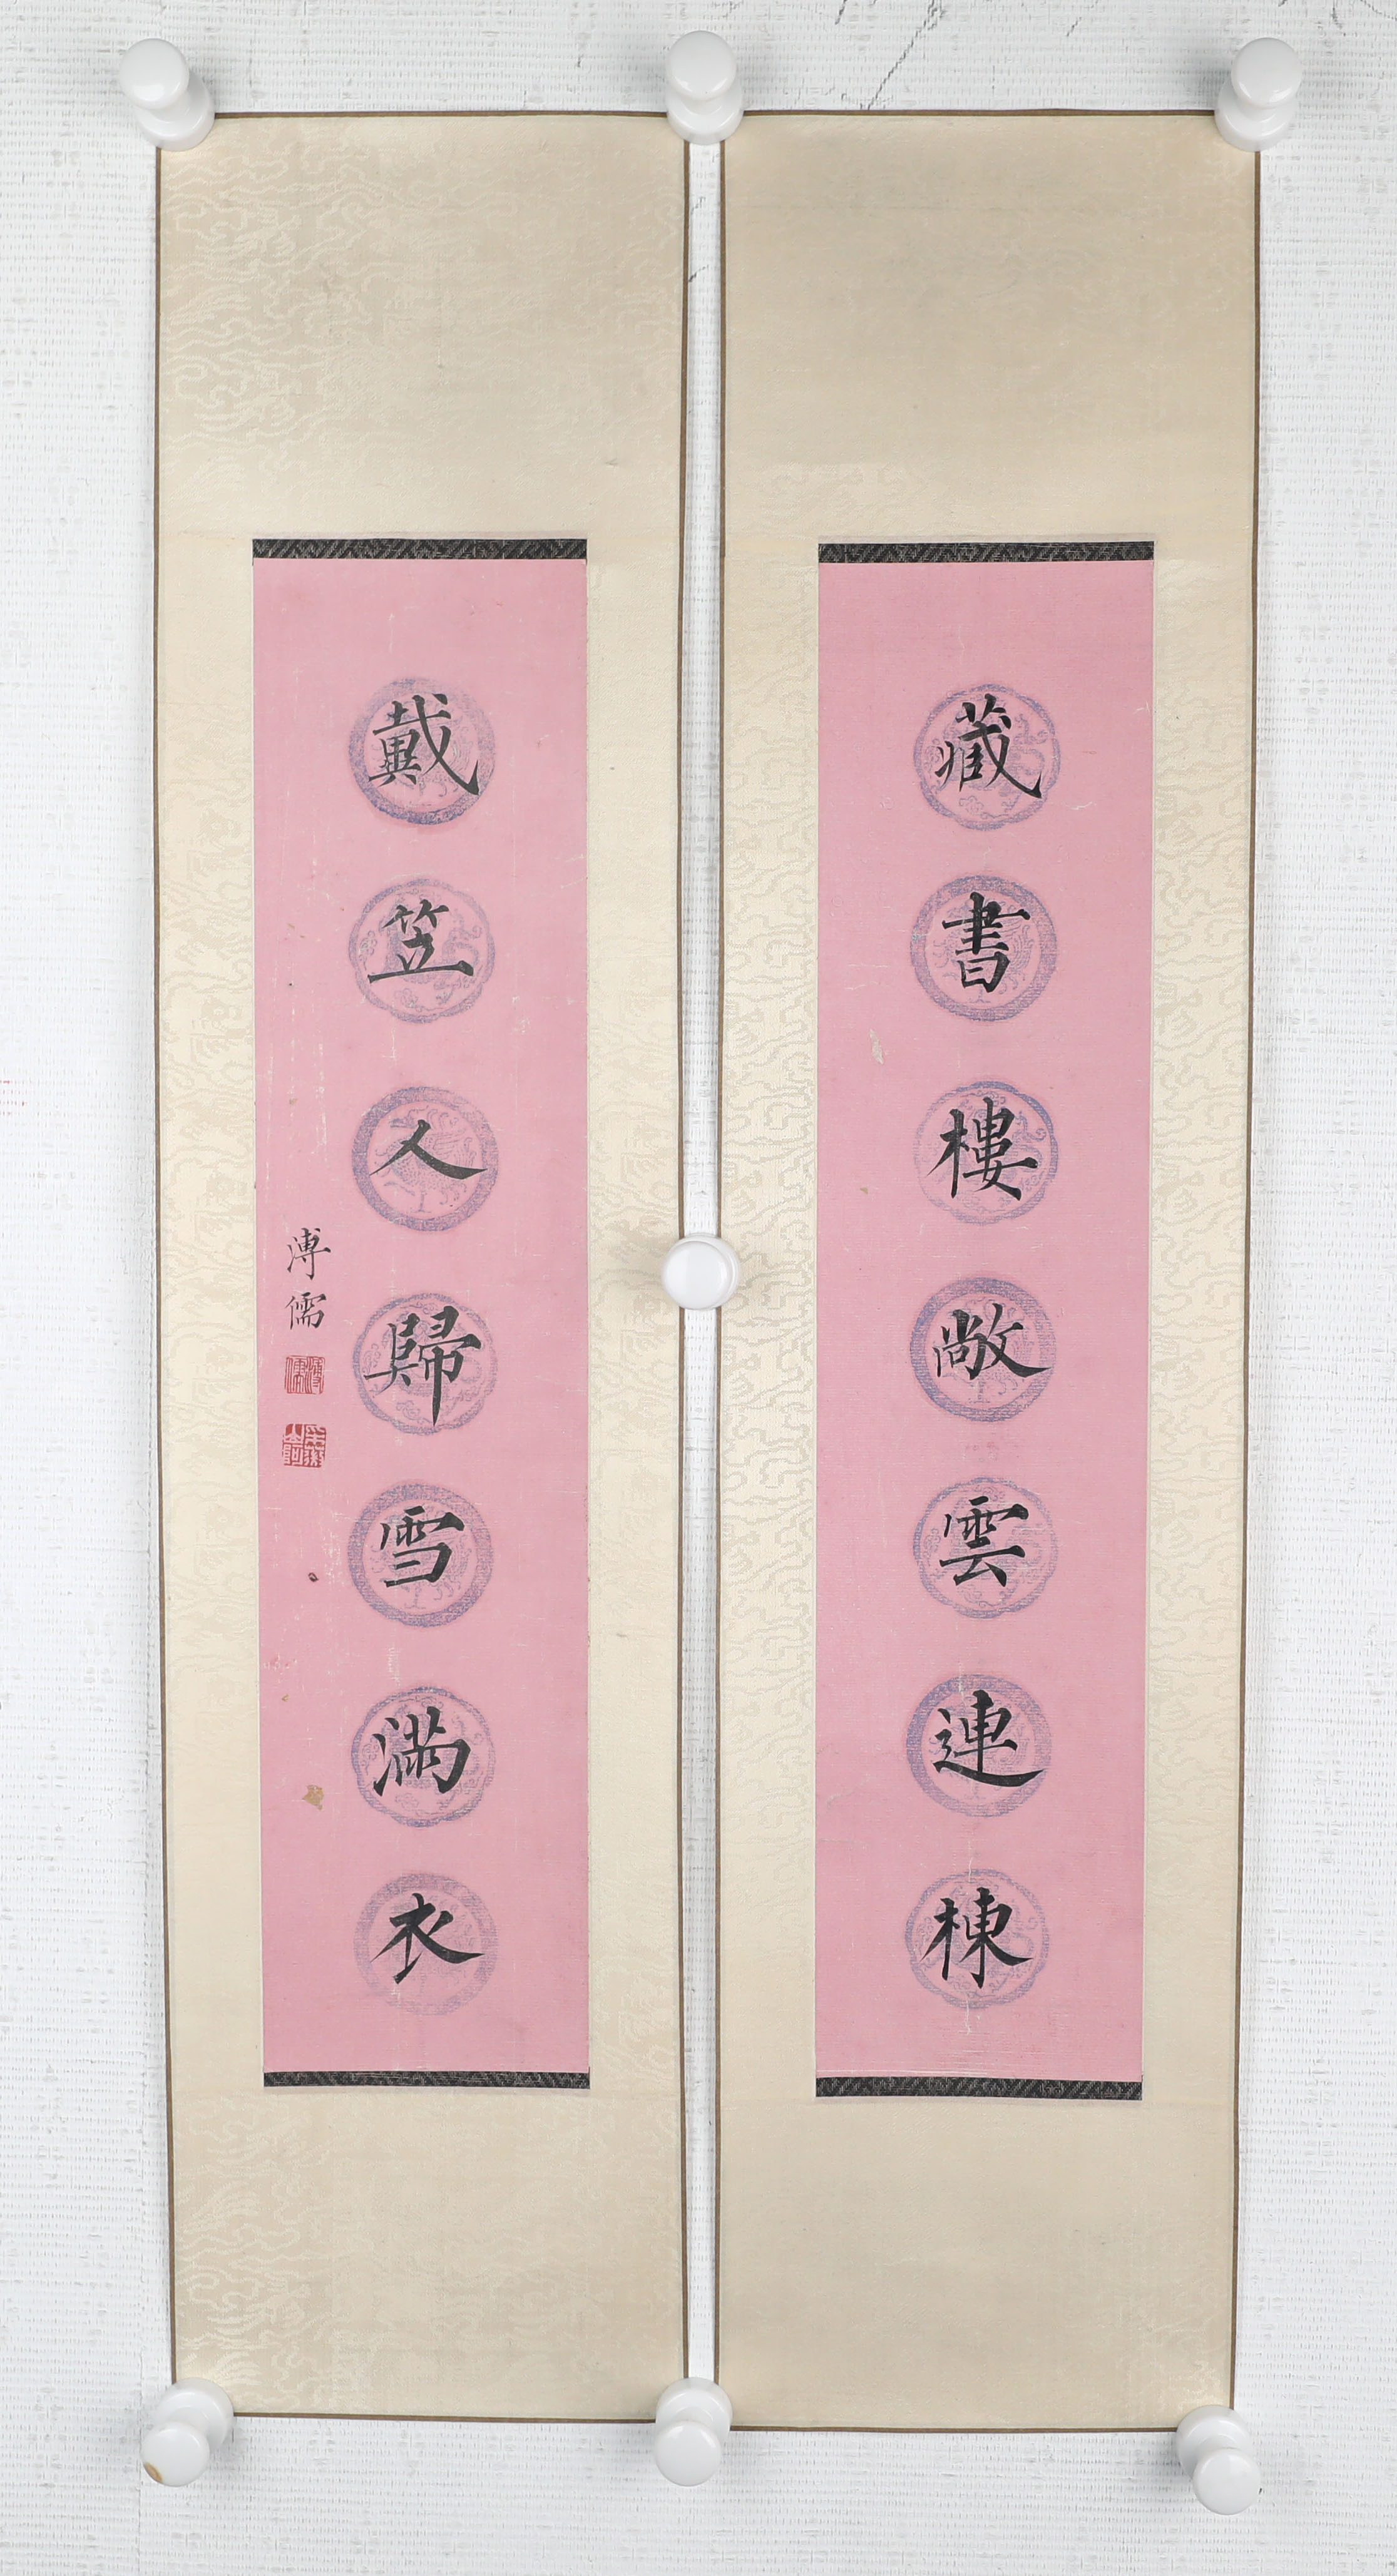 藏書樓敞雲連棟
戴笠人歸雪滿衣
溥儒
溥儒